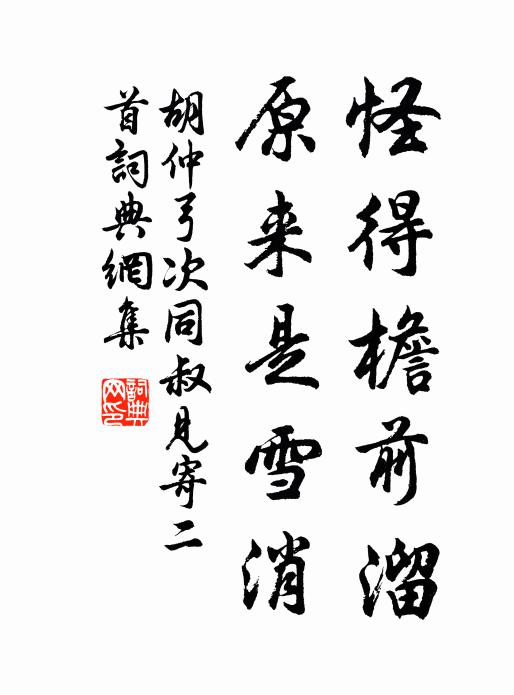 怪得檐前溜
原来是雪消
胡仲弓次同叔見寄二
首詞典網集
詞典
网印